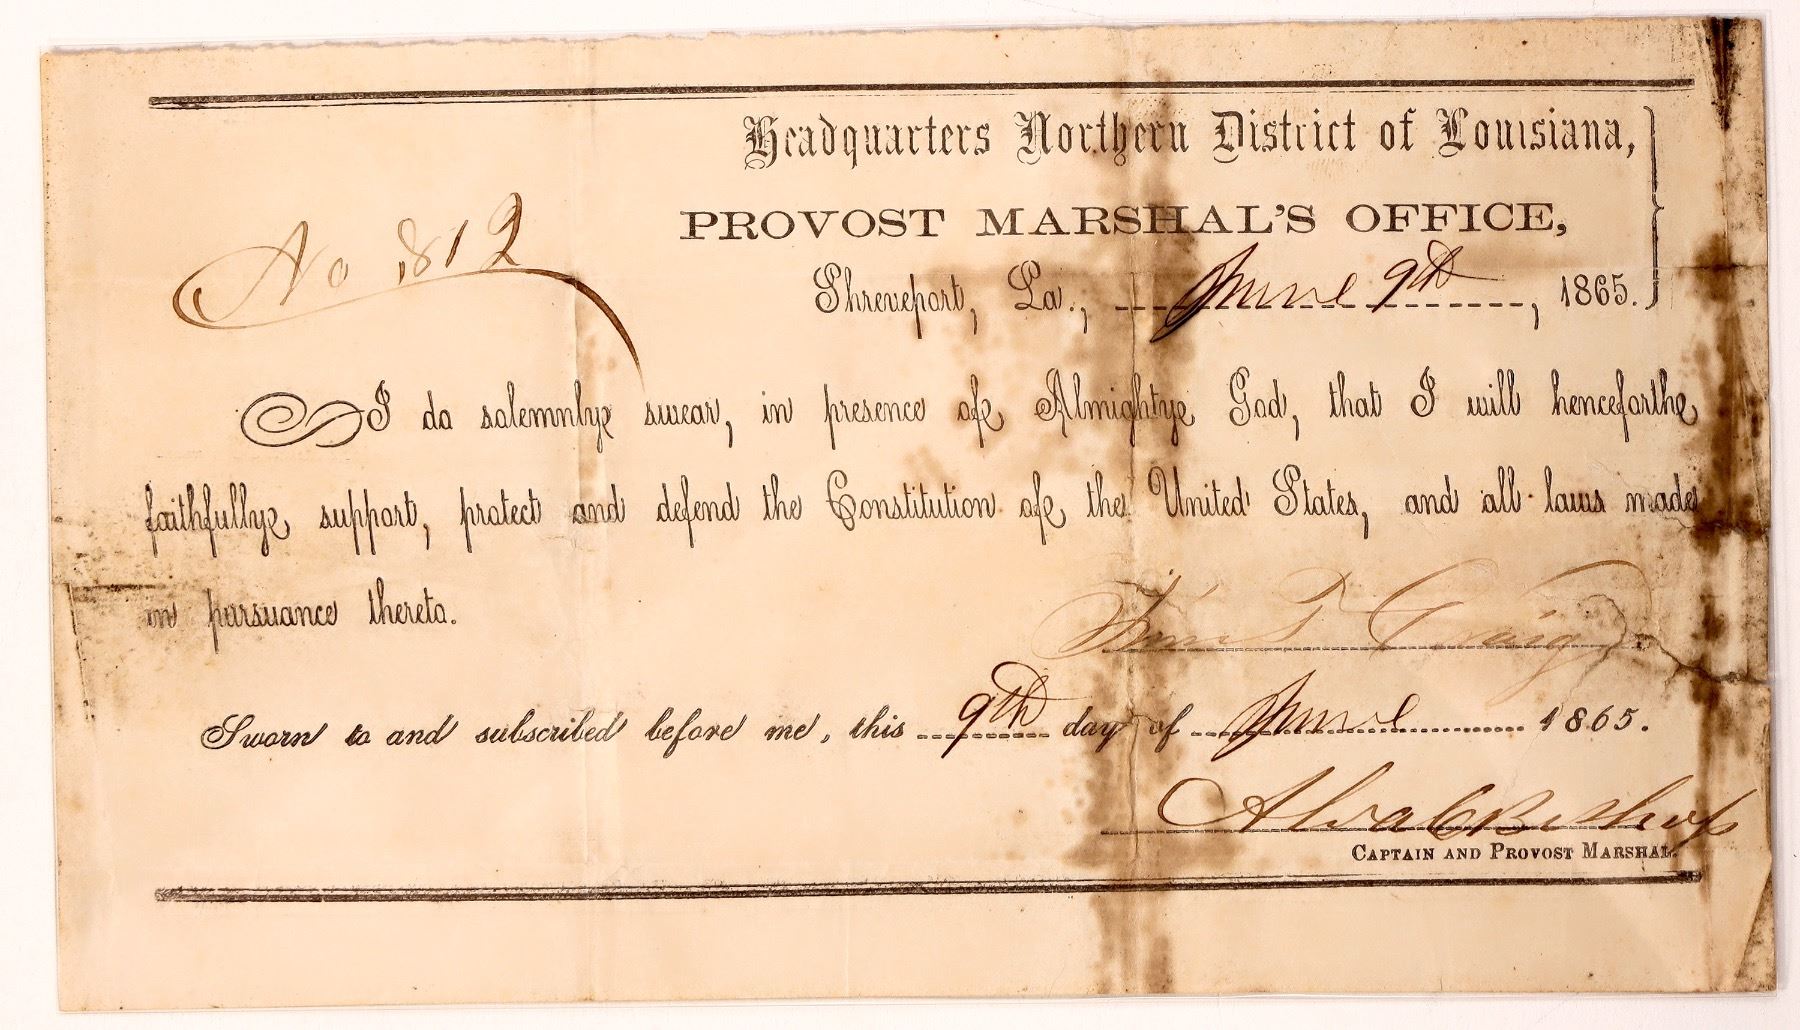 Headquarters Northern District of Louisiana,
PROVOST MARSHAL'S OFFICE,
No 812
Shreveport, La., June 9th, 1865.
I do solemnly swear, in presence of Almighty God, that I will henceforth
faithfully support, protect and defend the Constitution of the United States, and all laws made
in pursuance thereto.
Craig
Sworn to and subscribed before me, this 9th day of June 1865.
Alva C Bishop
CAPTAIN AND PROVOST MARSHAL.